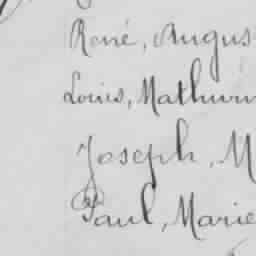 René, Angus
Louis, Mathurin
Joseph, M
Paul, Marie